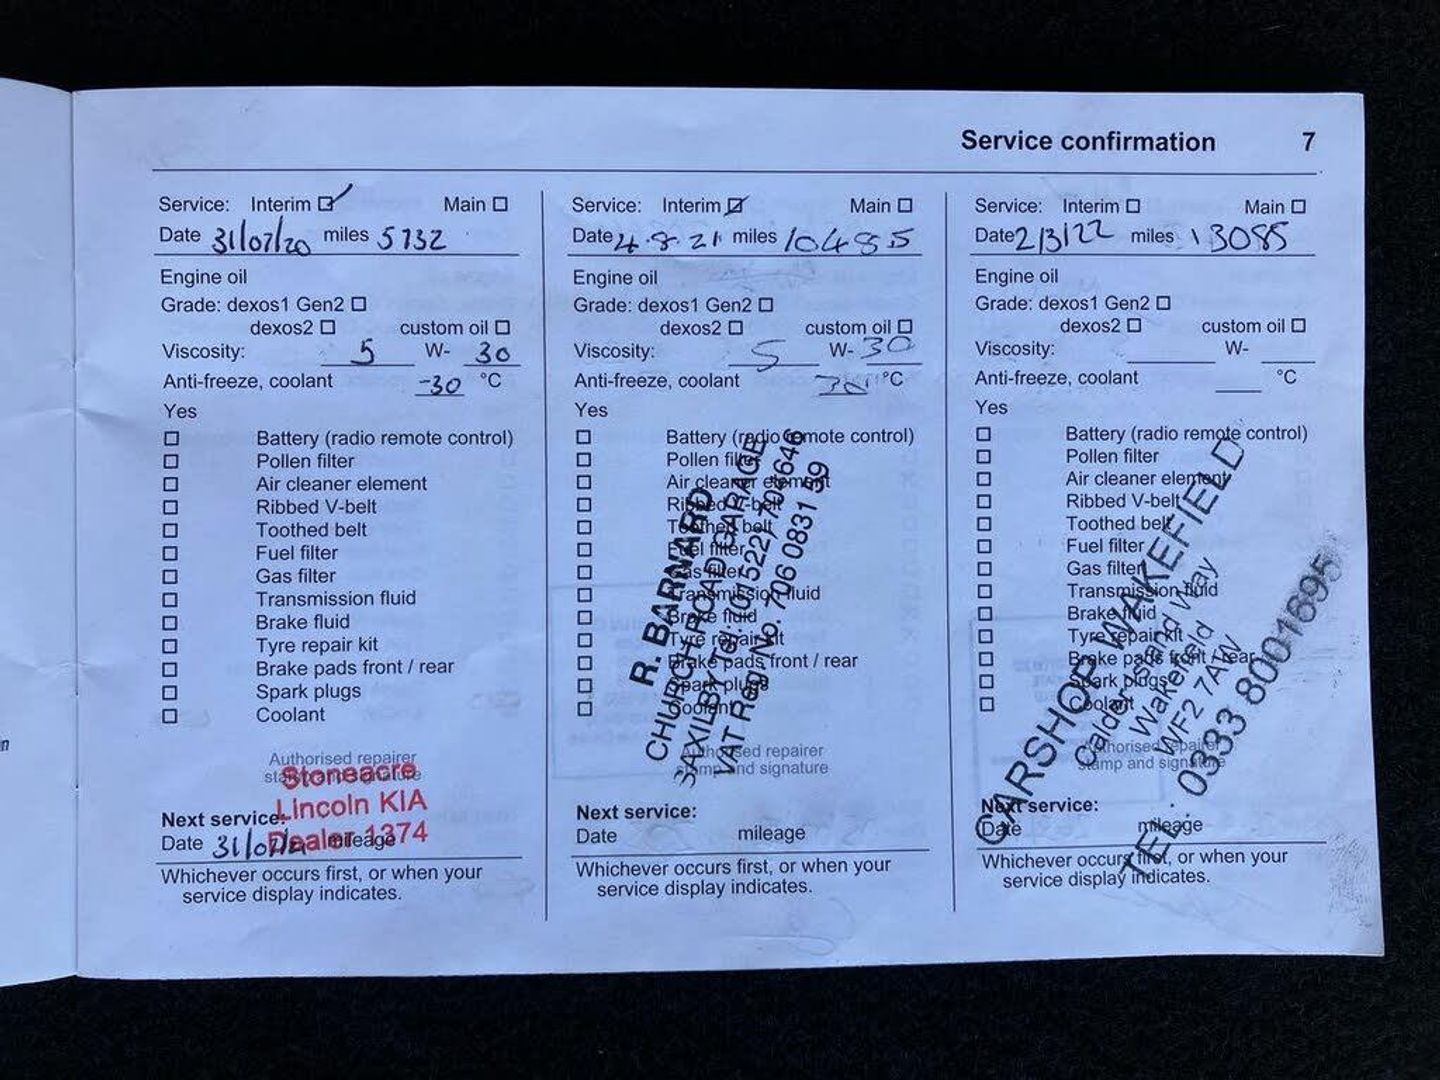 Service confirmation 7
Service: Interim Main
Date 31/07/20 miles 5732
Engine oil
Grade: dexos1 Gen2
dexos2 custom oil
Viscosity: 5 W- 30
Anti-freeze, coolant -30 °C
Yes
Battery (radio remote control)
Pollen filter
Air cleaner element
Ribbed V-belt
Toothed belt
Fuel filter
Gas filter
Transmission fluid
Brake fluid
Tyre repair kit
Brake pads front / rear
Spark plugs
Coolant
Authorised repairer
stamp and signature
Stoneacre
Lincoln KIA
Dealer 1374
Next service:
Date 31/07/21 mileage
Whichever occurs first, or when your
service display indicates.
Service: Interim Main
Date 4.8.21 miles 10485
Engine oil
Grade: dexos1 Gen2
dexos2 custom oil
Viscosity: 5 W- 30
Anti-freeze, coolant °C
Yes
Battery (radio remote control)
Pollen filter
Air cleaner element
Ribbed V-belt
Toothed belt
Fuel filter
Gas filter
Transmission fluid
Brake fluid
Tyre repair kit
Brake pads front / rear
Spark plugs
Coolant
R. BARNARD
CHURCH ROAD GARAGE
SAXILBY Tel: 01522 704646
VAT Reg No. 706 0831 59
Authorised repairer
stamp and signature
Next service:
Date mileage
Whichever occurs first, or when your
service display indicates.
Service: Interim Main
Date 2/3/22 miles 13085
Engine oil
Grade: dexos1 Gen2
dexos2 custom oil
Viscosity: W-
Anti-freeze, coolant °C
Yes
Battery (radio remote control)
Pollen filter
Air cleaner element
Ribbed V-belt
Toothed belt
Fuel filter
Gas filter
Transmission fluid
Brake fluid
Tyre repair kit
Brake pads front / rear
Spark plugs
Coolant
CARSHOP WAKEFIELD
Calder Island Way
Wakefield
WF2 7AW
TEL: 0333 8001695
Authorised repairer
stamp and signature
Next service:
Date mileage
Whichever occurs first, or when your
service display indicates.